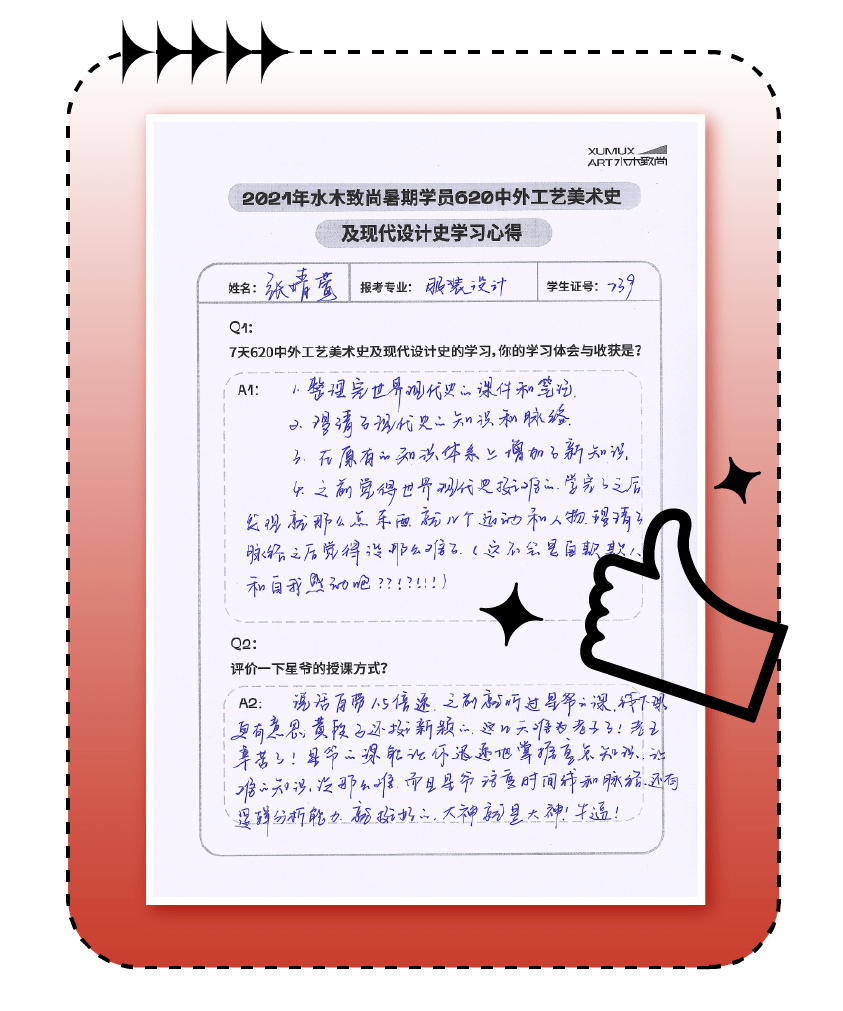 XUMUX
ART水木致尚
2021年水木致尚暑期学员620中外工艺美术史
及现代设计史学习心得
姓名: 张婧萱 报考专业: 服装设计 学生证号: 739
Q1:
7天620中外工艺美术史及现代设计史的学习,你的学习体会与收获是?
A1: 1. 整理完世界现代史的课件和笔记.
2. 理清了现代史的知识和脉络.
3. 在原有的知识体系上增加了新知识.
4. 之前觉得世界现代史挺难的.学完了之后
发现就那么点东西.就几个运动和人物.理清了
脉络之后觉得没那么难了.(这不会是自欺欺人
和自我感动吧???!?!!!)
Q2:
评价一下星爷的授课方式?
A2: 说话自带1.5倍速.之前就听过星爷的课.线下课
更有意思.黄段子还挺新颖的.这几天难为老子了!老王
辛苦了!星爷的课能让你迅速地掌握重点知识.让
难的知识.没那么难.而且星爷注重时间线和脉络.还有
逻辑分析能力.就挺好的.大神就是大神!牛逼!